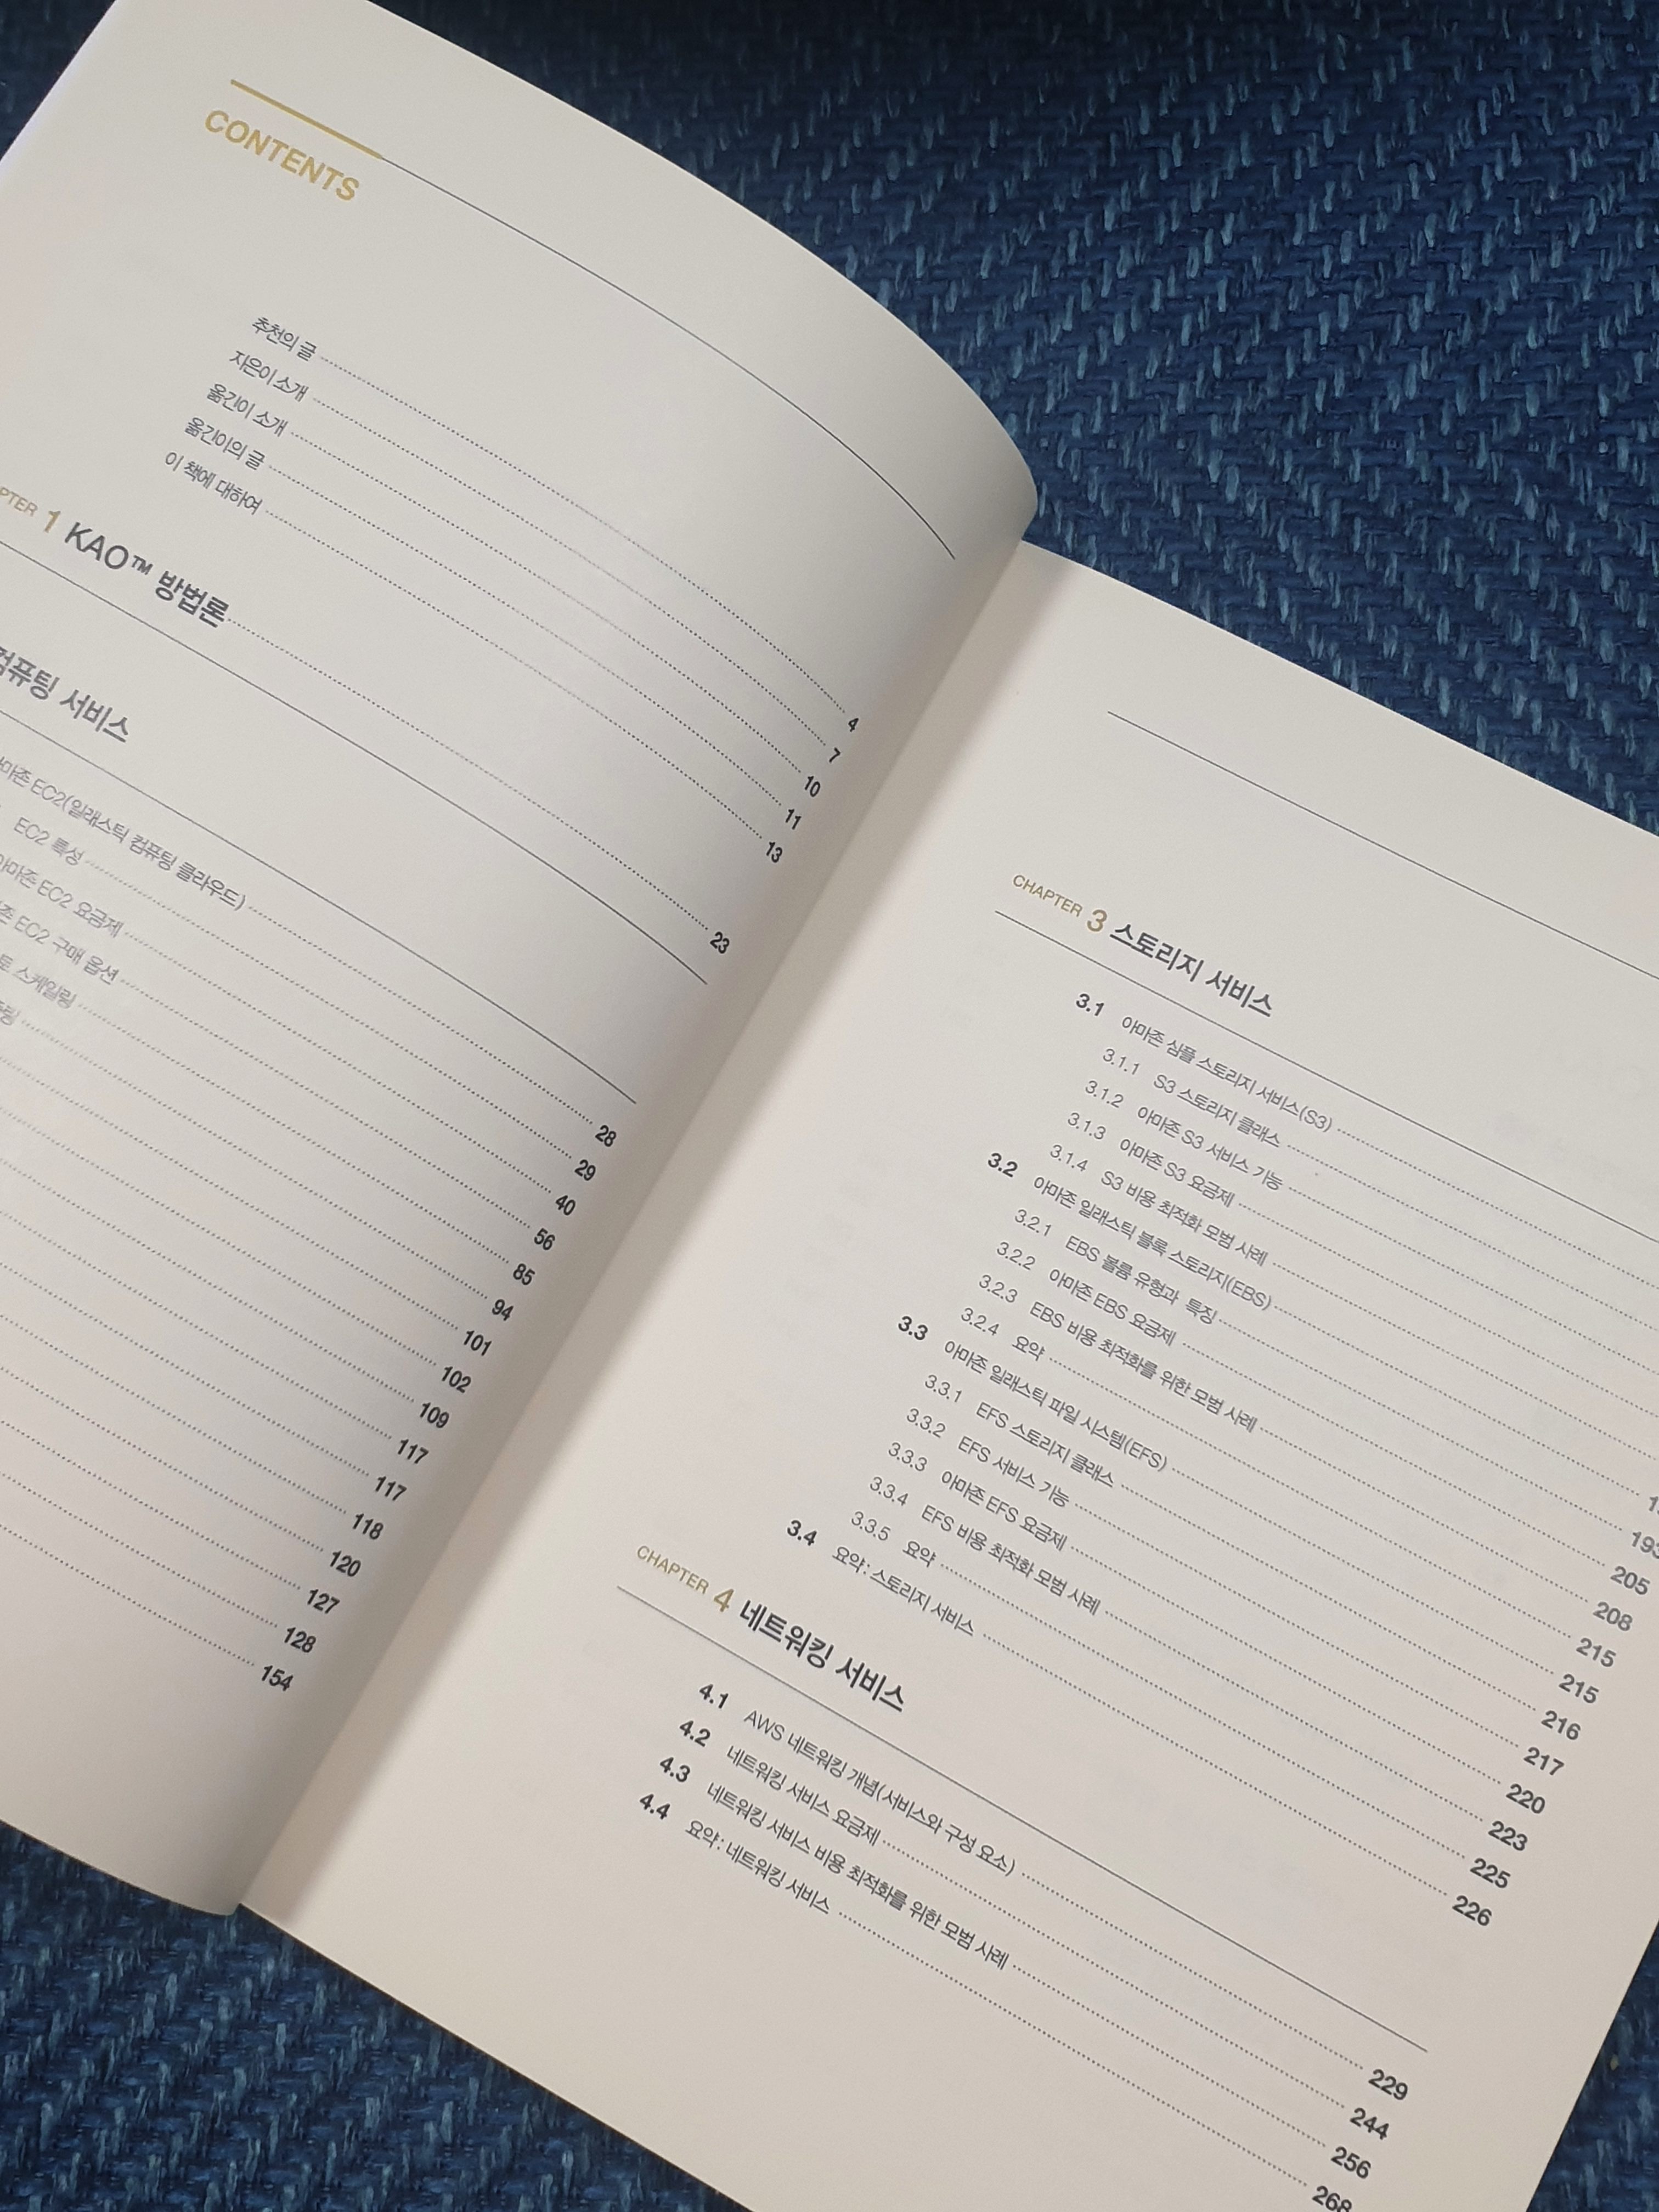 CONTENTS
추천의 글 4
지은이 소개 7
옮긴이 소개 10
옮긴이의 글 11
이 책에 대하여 13
1 KAO™ 방법론 23
컴퓨팅 서비스
EC2(일래스틱 컴퓨팅 클라우드) 28
EC2 특성 29
아마존 EC2 요금제 40
EC2 구매 옵션 56
스케일링 85
94
101
102
109
117
117
118
120
127
128
154
CHAPTER 3 스토리지 서비스
3.1 아마존 심플 스토리지 서비스(S3)
3.1.1 S3 스토리지 클래스
3.1.2 아마존 S3 서비스 기능
3.1.3 아마존 S3 요금제
3.1.4 S3 비용 최적화 모범 사례
3.2 아마존 일래스틱 블록 스토리지(EBS)
3.2.1 EBS 볼륨 유형과 특징 193
3.2.2 아마존 EBS 요금제 205
3.2.3 EBS 비용 최적화를 위한 모범 사례 208
3.2.4 요약 215
3.3 아마존 일래스틱 파일 시스템(EFS) 215
3.3.1 EFS 스토리지 클래스 216
3.3.2 EFS 서비스 기능 217
3.3.3 아마존 EFS 요금제 220
3.3.4 EFS 비용 최적화 모범 사례 223
3.3.5 요약 225
3.4 요약 : 스토리지 서비스 226
CHAPTER 4 네트워킹 서비스
4.1 AWS 네트워킹 개념(서비스와 구성 요소) 229
4.2 네트워킹 서비스 요금제 244
4.3 네트워킹 서비스 비용 최적화를 위한 모범 사례 256
4.4 요약 : 네트워킹 서비스 268